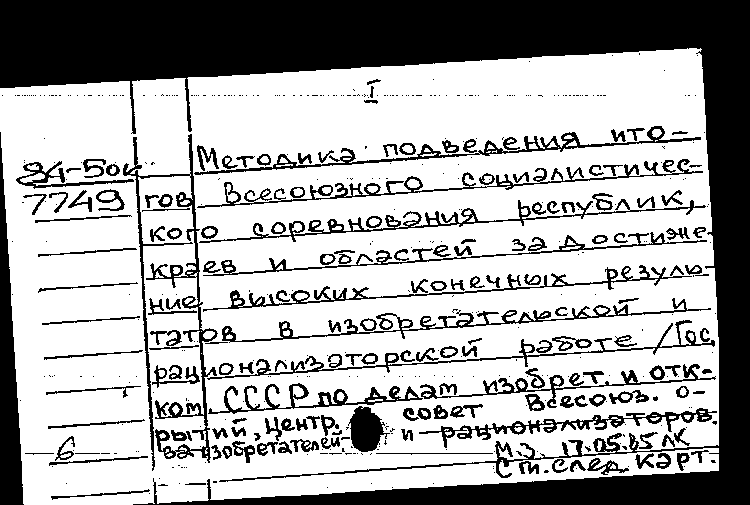 I
84-50к Методика подведения ито-
7749 гов Всесоюзного социалистичес-
кого соревнования республик,
краев и областей за достиже-
ние высоких конечных резуль-
татов в изобретательской и
рационализаторской работе /Гос.
ком. СССР по делам изобрет. и отк-
рытий, Центр. совет Всесоюз. о-
ва изобретателей и рационализаторов.
6 М.З. 17.05.85 ЛК
См. след. карт.